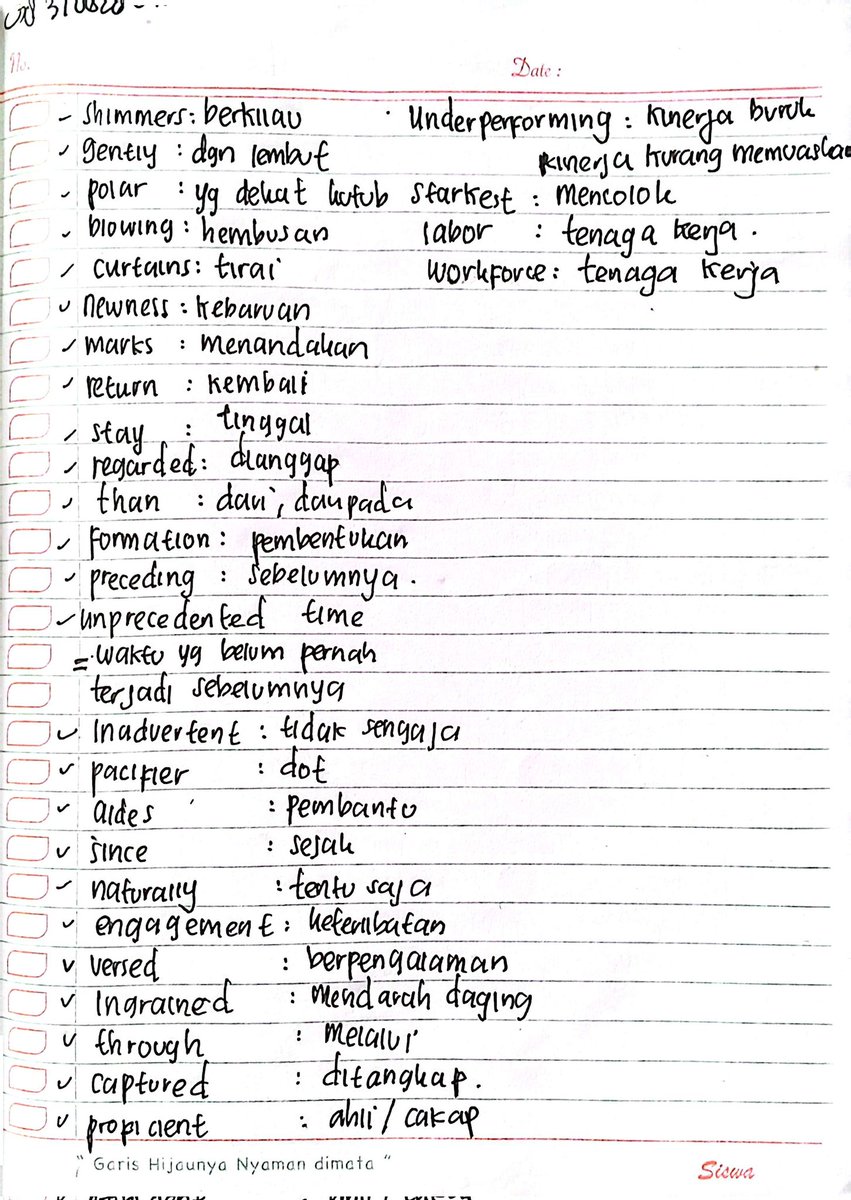 No.
Date :
✓ shimmers : berkilau
✓ gently : dgn lembut
✓ polar : yg dekat kutub
✓ blowing : hembusan
✓ curtains : tirai
✓ newness : kebaruan
✓ marks : menandakan
✓ return : kembali
✓ stay : tinggal
✓ regarded : dianggap
✓ than : dari, daripada
✓ formation : pembentukan
✓ preceding : sebelumnya.
✓ unprecedented time
= waktu yg belum pernah
terjadi sebelumnya
✓ Inadvertent : tidak sengaja
✓ pacifier : dot
✓ aides : pembantu
✓ since : sejak
✓ naturally : tentu saja
✓ engagement : keterlibatan
✓ versed : berpengalaman
✓ Ingrained : mendarah daging
✓ through : melalui
✓ captured : ditangkap.
✓ proficient : ahli / cakap
Underperforming : kinerja buruk
kinerja kurang memuaskan
starkest : mencolok
labor : tenaga kerja.
workforce : tenaga kerja
" Garis Hijaunya Nyaman dimata "
Siswa